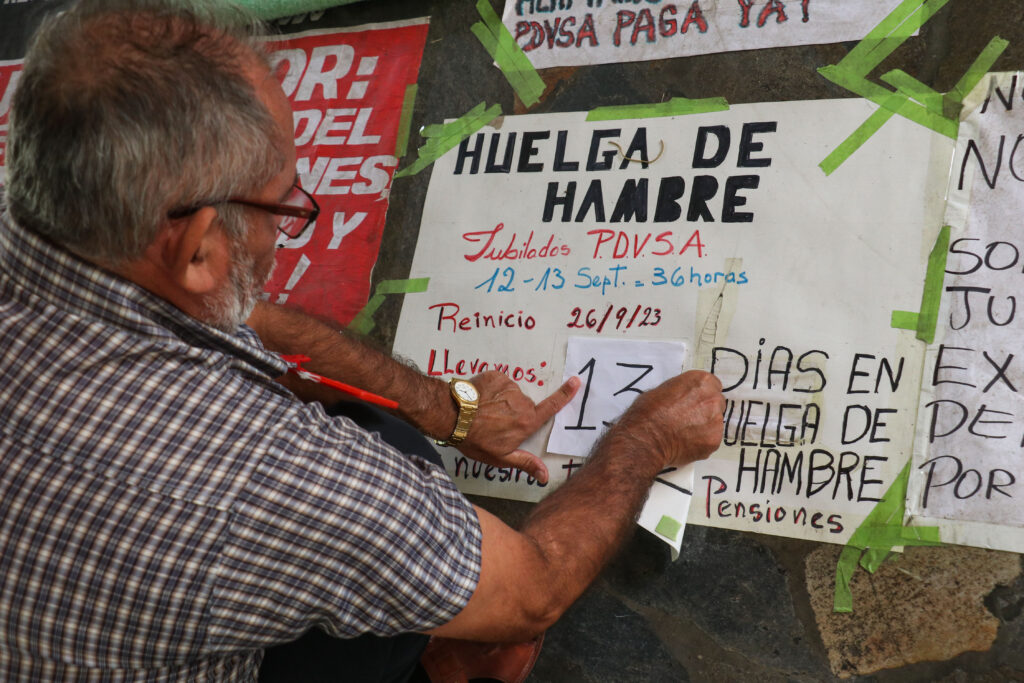 PDVSA PAGA YA!
OR:
DEL
NES,
Y
!
HUELGA DE
HAMBRE
Jubilados P.D.V.S.A.
12-13 Sept. = 36horas
Reinicio 26/9/23
Llevamos:
13
DíAS EN
HUELGA DE
HAMBRE
nuestra
Pensiones
NO
SO
JU
EX
DE
POR